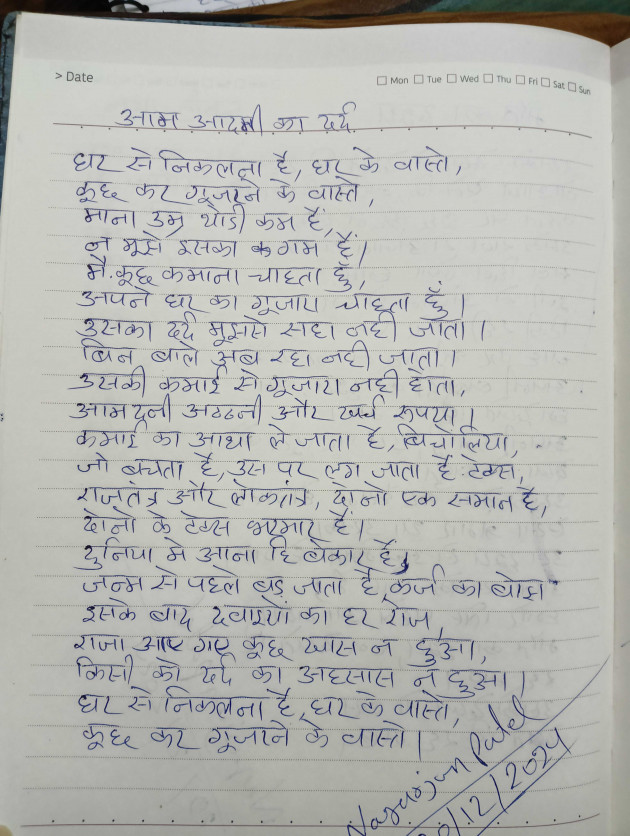 > Date
Mon Tue Wed Thu Fri Sat Sun
आम आदमी का दर्द
घर से निकलना है, घर के वास्ते,
कूछ कर गूजरने के वास्ते,
माना उम्र थोडी कम हैं,
न मूझे इसका गम हैं।
मैं कूछ कमाना चाहता हूँ,
अपने घर का गूजारा चाहता हूँ।
उसका दर्द मूझसे सहा नही जाता।
बिन बोले अब रहा नही जाता।
उसकी कमाई से गूजारा नही होता,
आमदनी अठठनी और खर्च रूपया।
कमाई का आधा ले जाता है, बिचोलिया,
जो बचता है, उस पर लग जाता है टेक्स,
राजतंत्र और लोकतंत्र, दोनो एक समान है,
दोनो के टेक्स भरमार है।
दुनिया मे आना हि बेकार है,
जन्म से पहले बड़ जाता है कर्ज का बोझ
इसके बाद दवाइयों का हर रोज,
राजा आए गए कूछ खास न हुआ,
किसी को दर्द का अहसास न हुआ।
घर से निकलना है, घर के वास्ते,
कूछ कर गूजरने के वास्ते।
Nagarjun Patel
/12/2024